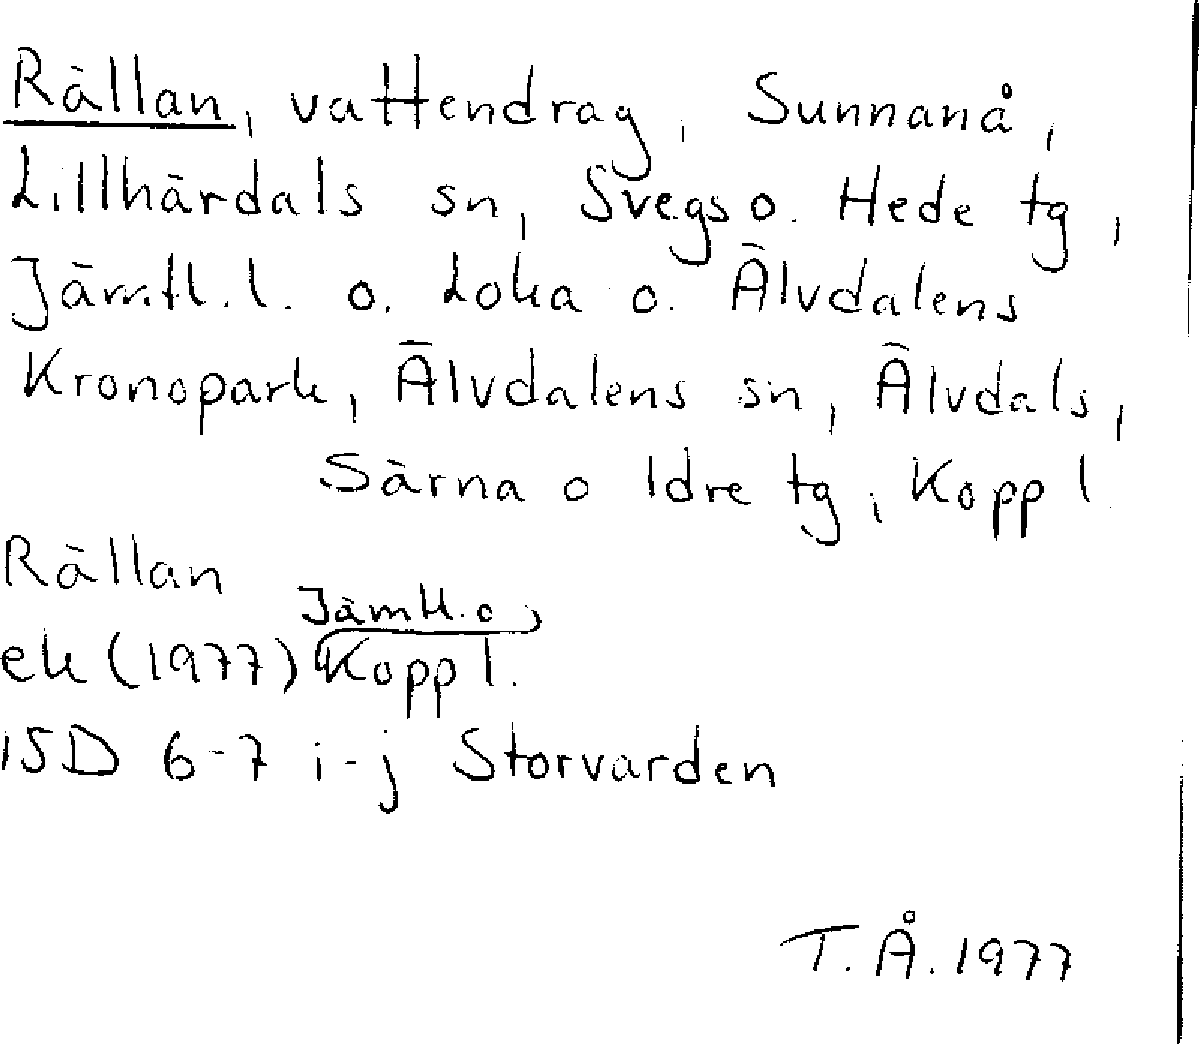 Rällan, vattendrag, Sunnanå,
Lillhärdals sn, Svegs o. Hede tg,
Jämtl. l. o. Loka o. Älvdalens
Kronopark, Älvdalens sn, Älvdals,
Särna o Idre tg, Kopp l
Rällan
Jämtl. o
ek (1977) Kopp l.
15D 6-7 i-j Storvarden
T.Å. 1977